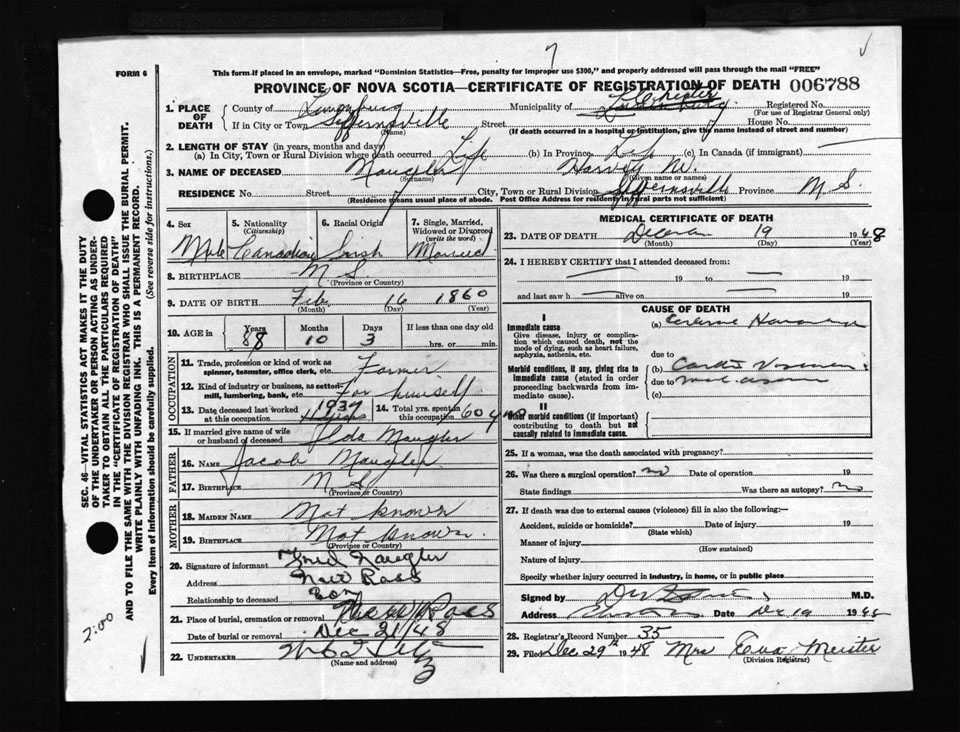 7
FORM 6
This form if placed in an envelope, marked "Dominion Statistics—Free, penalty for improper use $300," and properly addressed will pass through the mail "FREE"
PROVINCE OF NOVA SCOTIA—CERTIFICATE OF REGISTRATION OF DEATH 006788
1. PLACE OF DEATH County of Lunenburg Municipality of Chester Registered No.
(For use of Registrar General only)
If in City or Town Seffernsville Street House No.
(Name) (If death occurred in a hospital or institution, give the name instead of street and number)
2. LENGTH OF STAY (in years, months and days)
(a) In City, Town or Rural Division where death occurred Life (b) In Province Life (c) In Canada (if immigrant)
3. NAME OF DECEASED Naugler Harvey W.
(Surname) (Given name or names)
RESIDENCE No. Street City, Town or Rural Division Seffernsville Province N S.
(Residence means usual place of abode. Post Office Address for residents in rural parts not sufficient)
4. Sex 5. Nationality (Citizenship) 6. Racial Origin 7. Single, Married, Widowed or Divorced (write the word)
Male Canadian Irish Married
8. BIRTHPLACE N S
(Province or Country)
9. DATE OF BIRTH Feb 16 1860
(Month) (Day) (Year)
10. AGE in Years Months Days If less than one day old
88 10 3 hrs. or min.
OCCUPATION
11. Trade, profession or kind of work as spinner, teamster, office clerk, etc. Farmer
12. Kind of industry or business, as cotton-mill, lumbering, bank, etc. For himself
13. Date deceased last worked at this occupation 1937 14. Total yrs. spent in this occupation 60 yrs
15. If married give name of wife or husband of deceased Ilda Naugler
FATHER
16. NAME Jacob Naugler
17. BIRTHPLACE N S
(Province or Country)
MOTHER
18. MAIDEN NAME Not known
19. BIRTHPLACE Not known.
(Province or Country)
20. Signature of informant Fred Naugler
Address New Ross
Relationship to deceased Son
21. Place of burial, cremation or removal New Ross
Date of burial or removal Dec 21/48
22. UNDERTAKER
(Name and address)
MEDICAL CERTIFICATE OF DEATH
23. DATE OF DEATH 19 1948
(Month) (Day) (Year)
24. I HEREBY CERTIFY that I attended deceased from:
19 to 19
and last saw h alive on 19
CAUSE OF DEATH
I
Immediate cause
Give disease, injury or complication which caused death, not the mode of dying, such as heart failure, asphyxia, asthenia, etc.
(a)
due to
Morbid conditions, if any, giving rise to immediate cause (stated in order proceeding backwards from immediate cause).
(b)
due to
(c)
II
Other morbid conditions (if important) contributing to death but not causally related to immediate cause.
25. If a woman, was the death associated with pregnancy?
26. Was there a surgical operation? no Date of operation 19
State findings Was there an autopsy? no
27. If death was due to external causes (violence) fill in also the following:—
Accident, suicide or homicide? Date of injury 19
(State which)
Manner of injury
(How sustained)
Nature of injury
Specify whether injury occurred in industry, in home, or in public place
Signed by M.D.
Address Date Dec 19 1948
28. Registrar's Record Number 35
29. Filed Dec 29th 1948 Mrs Eva Meister
(Division Registrar)
SEC. 46—VITAL STATISTICS ACT MAKES IT THE DUTY
OF THE UNDERTAKER OR PERSON ACTING AS UNDER-
TAKER TO OBTAIN ALL THE PARTICULARS REQUIRED
IN THE "CERTIFICATE OF REGISTRATION OF DEATH"
AND TO FILE THE SAME WITH THE DIVISION REGISTRAR WHO SHALL ISSUE THE BURIAL PERMIT.
WRITE PLAINLY WITH UNFADING INK. THIS IS A PERMANENT RECORD.
Every item of Information should be carefully supplied. (See reverse side for instructions.)
2:00